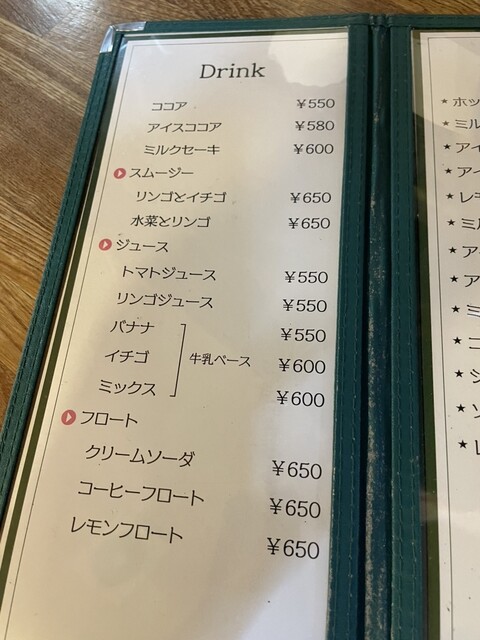 Drink
ココア ¥550
アイスココア ¥580
ミルクセーキ ¥600
スムージー
リンゴとイチゴ ¥650
水菜とリンゴ ¥650
ジュース
トマトジュース ¥550
リンゴジュース ¥550
バナナ ¥550
イチゴ 牛乳ベース ¥600
ミックス ¥600
フロート
クリームソーダ ¥650
コーヒーフロート ¥650
レモンフロート ¥650
★ホッ
★ミル
★アイ
★アイ
★レモ
★ミル
★ア
★ア
★
★コ
★ジ
★ソ
★レ